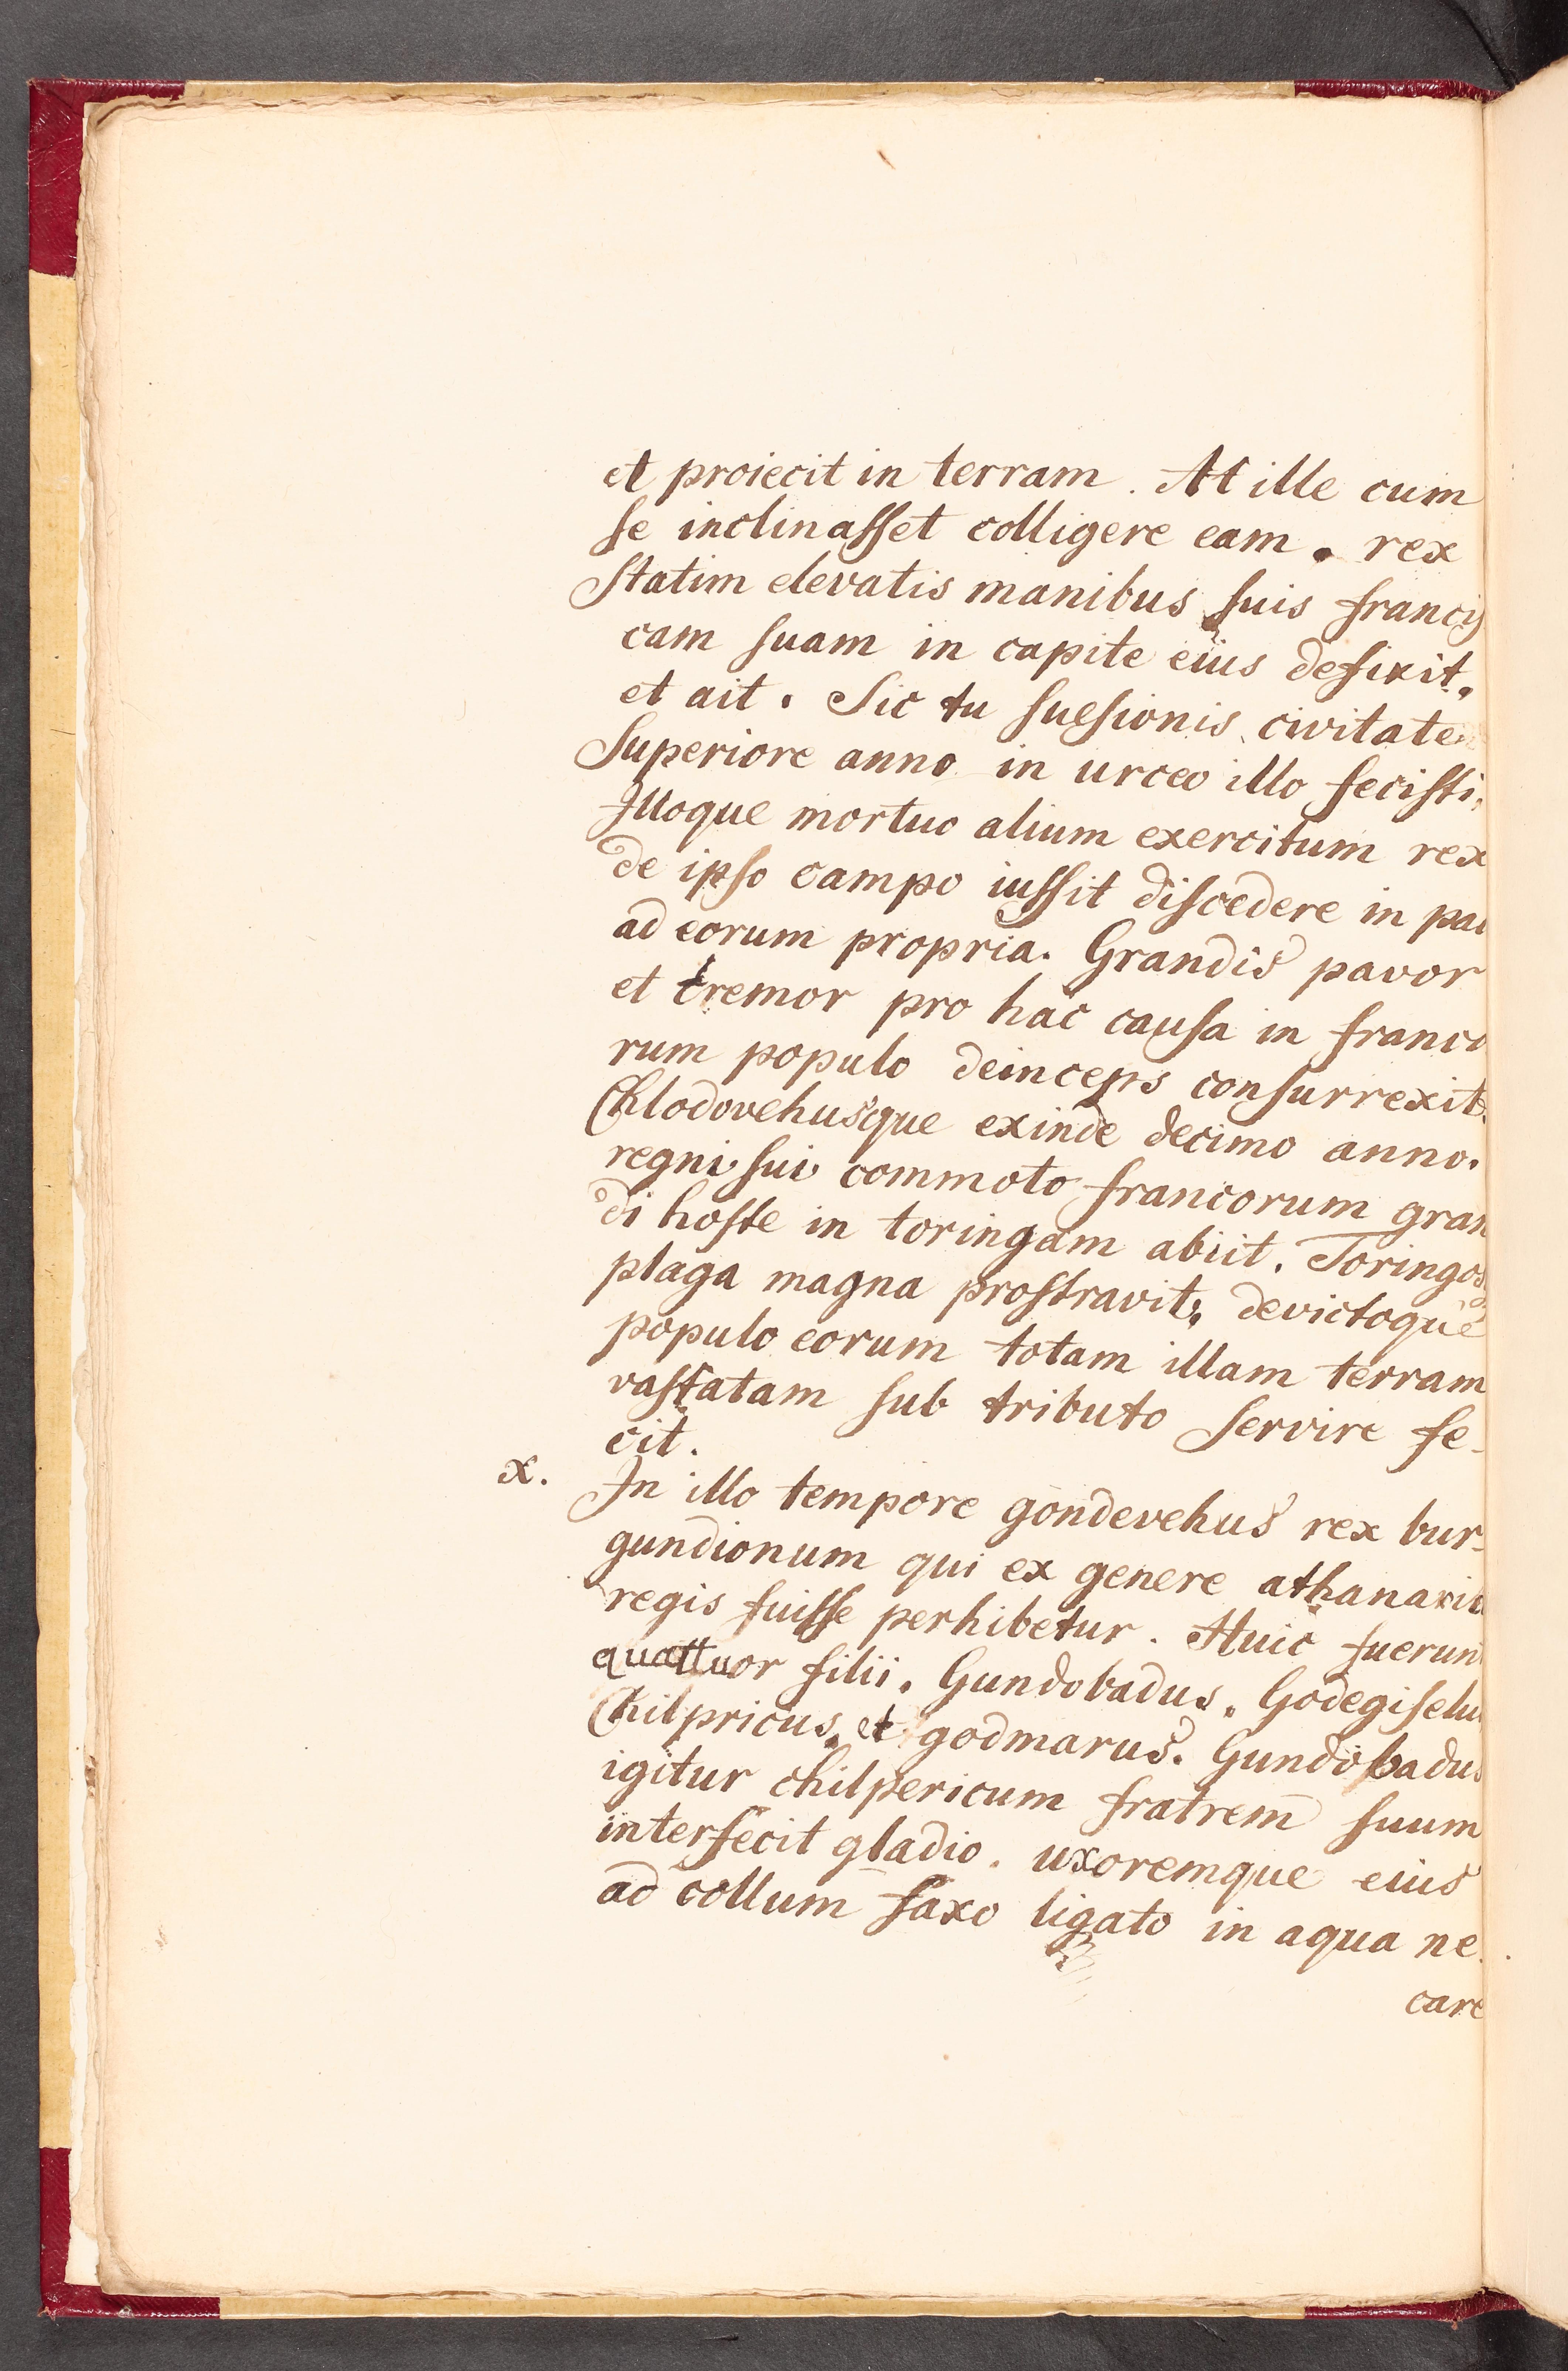 et proiecit in terram. At ille cum
se inclinasset colligere eam. rex
statim elevatis manibus suis francis
cam suam in capite eius defixit.
et ait. Sic tu suesionis civitate
superiore anno in urceo illo fecisti.
Illoque mortuo alium exercitum rex
de ipso campo iussit discedere in pa
ad eorum propria. Grandis pavor
et tremor pro hac causa in franco
rum populo deinceps consurrexit.
Chlodovehusque exinde decimo anno.
regni sui commoto francorum gran
di hoste in toringam abiit. Toringos
plaga magna prostravit, devictoque
populo eorum totam illam terram
vastatam sub tributo servire fe-
cit.
x. In illo tempore gondevehus rex bur-
gundionum qui ex genere athanarici
regis fuisse perhibetur. Huic fuerun
quattuor filii. Gundobadus. Godegiselu
Chilpricus. et godmarus. Gundobadus
igitur chilpericum fratrem suum
interfecit gladio. uxoremque eius
ad collum saxo ligato in aqua ne
care